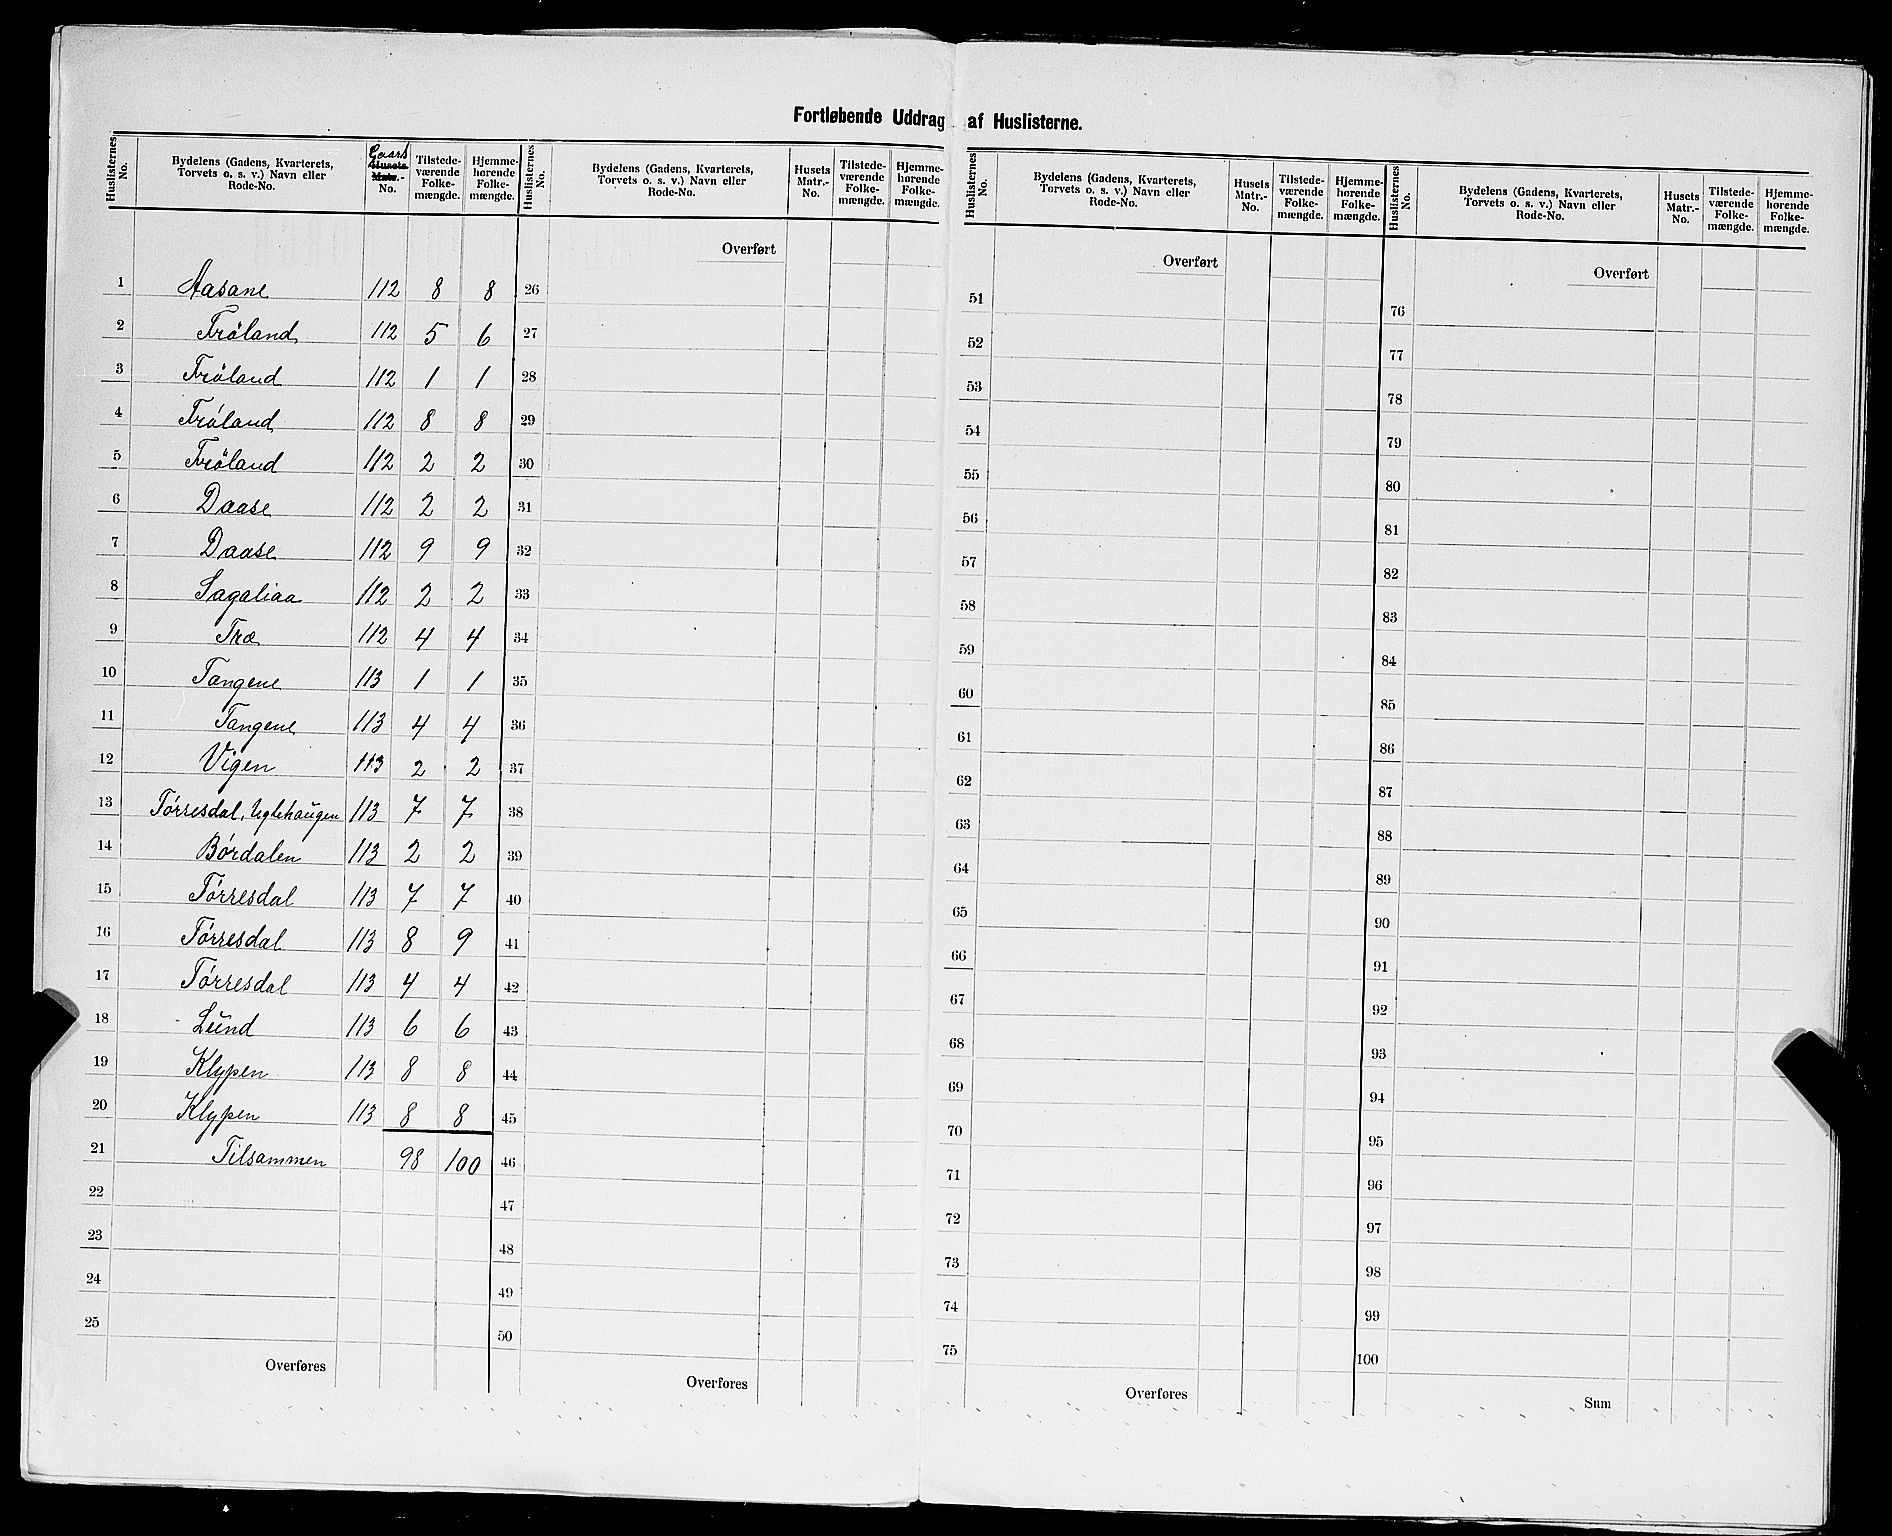 Fortløbende Uddrag af Huslisterne.
Huslisternes No. | Bydelens (Gadens, Kvarterets, Torvets o. s. v.) Navn eller Rode-No. | Gaards Husets Matr.-No. | Tilstedeværende Folkemængde. | Hjemmehørende Folkemængde.
1 Aasane 112 8 8
2 Frøland 112 5 6
3 Frøland 112 1 1
4 Frøland 112 8 8
5 Frøland 112 2 2
6 Daase 112 2 2
7 Daase 112 9 9
8 Sagaliaa 112 2 2
9 Træ 112 4 4
10 Tangene 113 1 1
11 Tangene 113 4 4
12 Vigen 113 2 2
13 Tørresdal, Uglehaugen 113 7 7
14 Børdalen 113 2 2
15 Tørresdal 113 7 7
16 Tørresdal 113 8 9
17 Tørresdal 113 4 4
18 Lund 113 6 6
19 Klypen 113 8 8
20 Klypen 113 8 8
21 Tilsammen 98 100
22
23
24
25
Overføres
Huslisternes No. | Bydelens (Gadens, Kvarterets, Torvets o. s. v.) Navn eller Rode-No. | Husets Matr.-No. | Tilstedeværende Folkemængde. | Hjemmehørende Folkemængde.
Overført
26
27
28
29
30
31
32
33
34
35
36
37
38
39
40
41
42
43
44
45
46
47
48
49
50
Overføres
Huslisternes No. | Bydelens (Gadens, Kvarterets, Torvets o. s. v.) Navn eller Rode-No. | Husets Matr.-No. | Tilstedeværende Folkemængde. | Hjemmehørende Folkemængde.
Overført
51
52
53
54
55
56
57
58
59
60
61
62
63
64
65
66
67
68
69
70
71
72
73
74
75
Overføres
Huslisternes No. | Bydelens (Gadens, Kvarterets, Torvets o. s. v.) Navn eller Rode-No. | Husets Matr.-No. | Tilstedeværende Folkemængde. | Hjemmehørende Folkemængde.
Overført
76
77
78
79
80
81
82
83
84
85
86
87
88
89
90
91
92
93
94
95
96
97
98
99
100
Sum